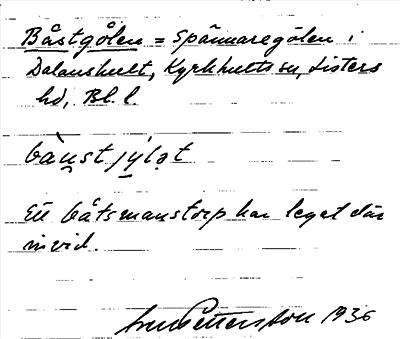 Båstgölen = Spännaregölen i
Dalanshult, Kyrkhults sn, Listers
hd, Bl. l.
Ett båtsmanstorp har legat där
invid.
Pettersson 1936